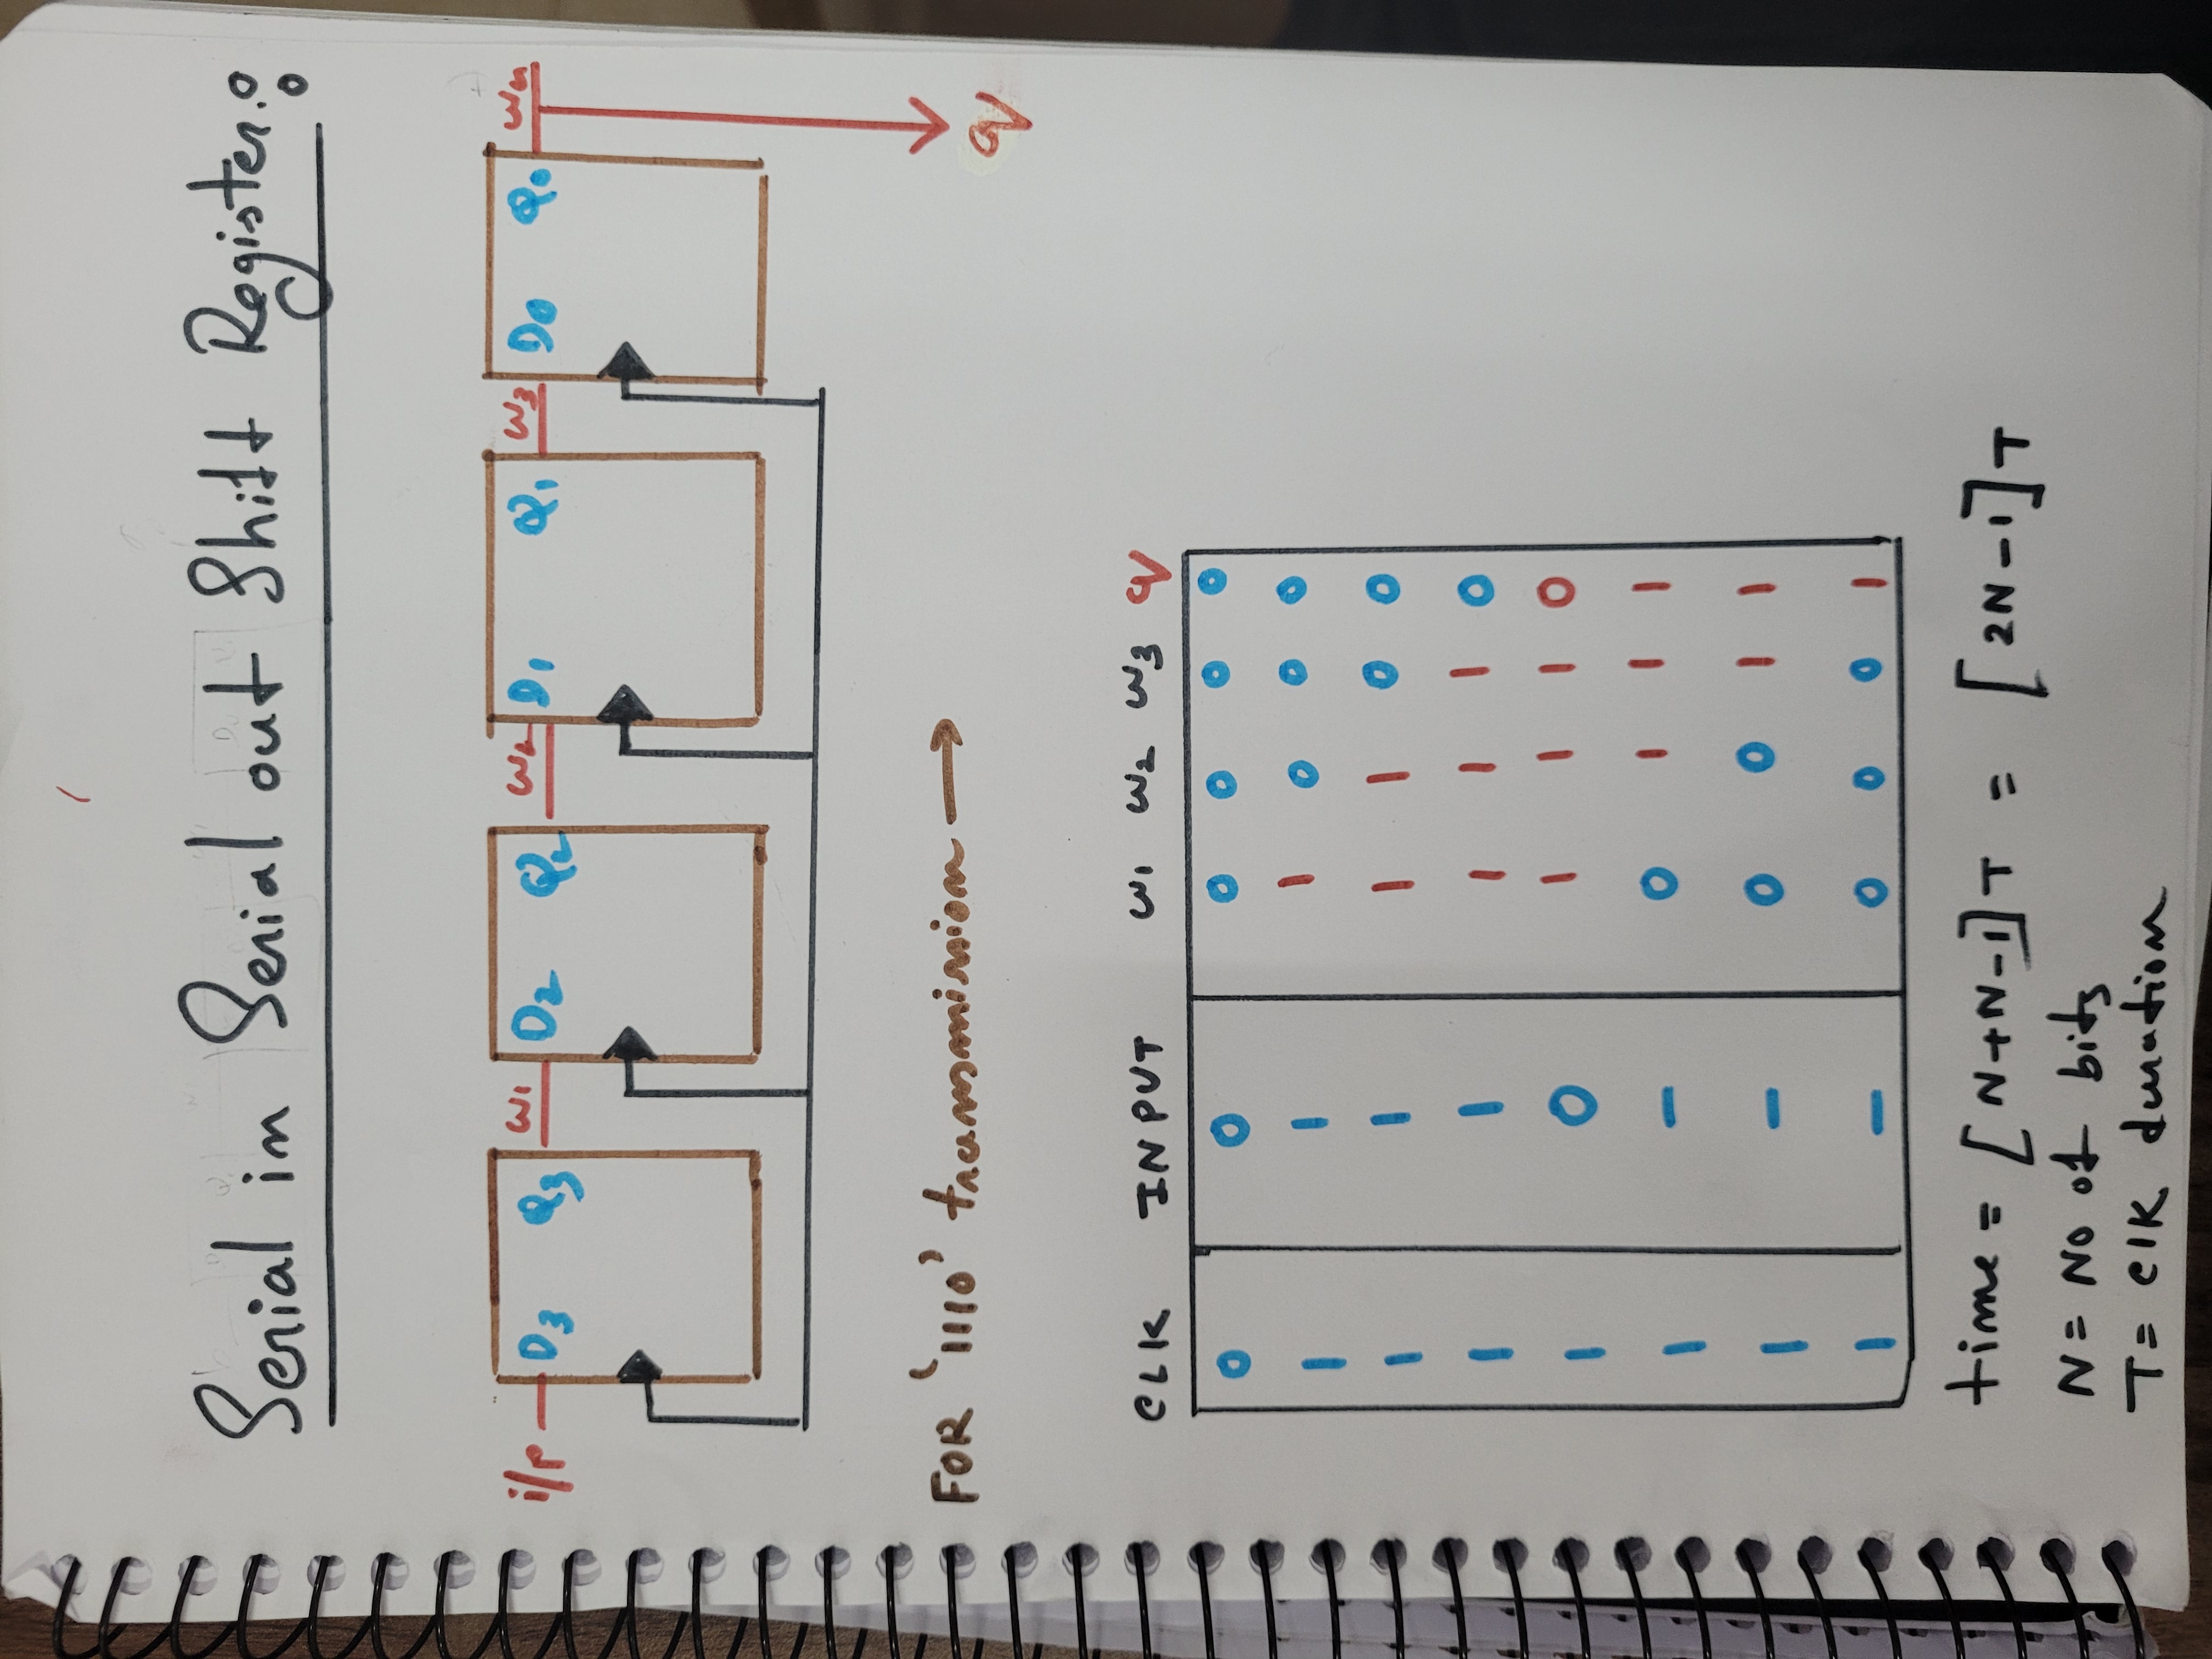 Serial in Serial out Shift Register:
i/p D3 Q3 w1 D2 Q2 w2 D1 Q1 w3 D0 Q0 w4
FOR '1110' transmission →
q
CLK INPUT w1 w2 w3 q
0 0 0 0 0 0
1 1 1 0 0 0
1 1 1 1 0 0
1 1 1 1 1 0
1 0 1 1 1 0
1 - 0 1 1 1
1 - 0 0 1 1
1 - 0 0 0 1
time = [N+N-1]T = [2N-1]T
N = No of bits
T = clk duration